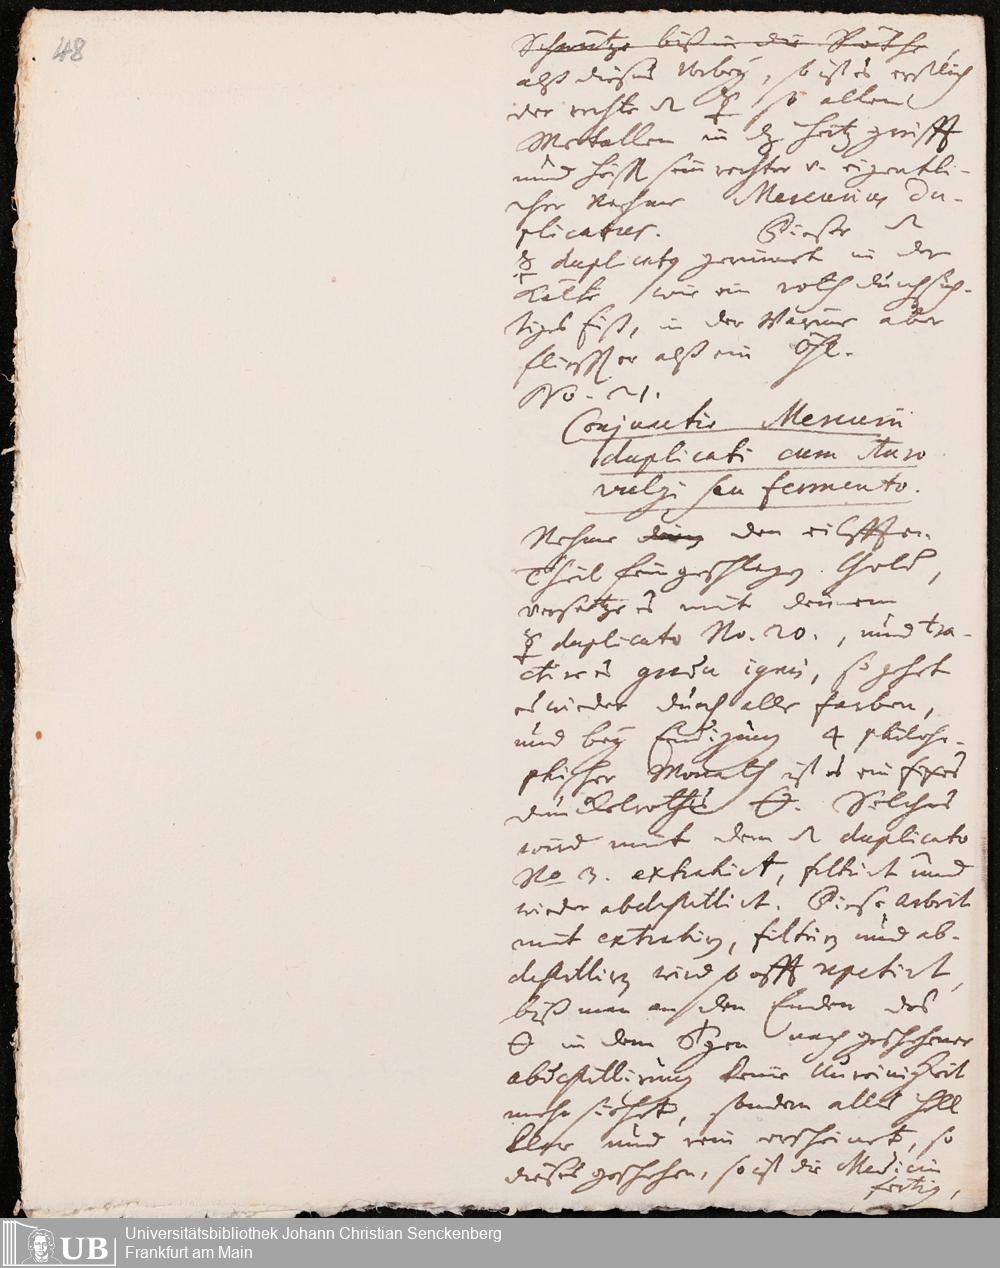 48
Schwärtze biß in die Röthe,
alß dieses Vorbey, so ist es erstlich
der rechte ☿ so allen
Metallen in Hertz greifft
und heist sein rechter v. eigentli-
cher Nahme Mercurius Du-
plicatus. Dießer
☿ duplicatg gerinnet in der
Kälte, wie ein roth durchsich-
tiges Eiß, in der Wärme aber
fliesset er alß ein Öhl.
No. 21.
Conjunctio Mercurii
duplicati cum Auro
vulgi seu fermento.
Nehme den eilfften
Theil fein geschlagen Gold,
versetze es mit deinem
☿ duplicato No. 20., und tra-
ctire es gradu ignis, so gehet
es wieder durch alle farben,
und bey Endigung 4 philoso-
phischer Monath ist es ein fixes
dunckelrothes . Solches
wird mit dem duplicato
No 3. extrahirt, filtrirt und
wieder abdestillirt. Diese Arbeit
mit extrahirn, filtrirn und ab-
destillirn wird so offt repetirt,
biß man an den Enden des
in dem nach geschehener
abdestillirung keine Unreinigkeit
mehr siehet, sondern alles hell
klar und rein erscheinet, so
dieses geschehen, so ist die Medicin
fertig,
Universitätsbibliothek Johann Christian Senckenberg
Frankfurt am Main
UB